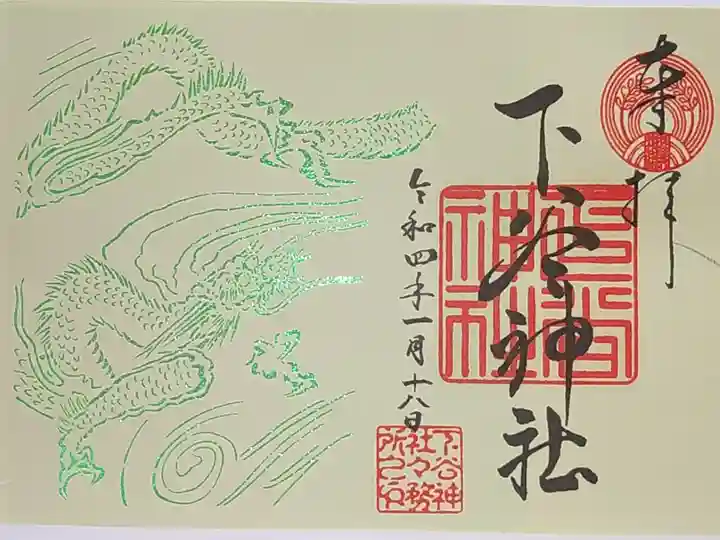 奉拝
下谷神社
令和四年一月十八日
下谷神
社々務
所之印